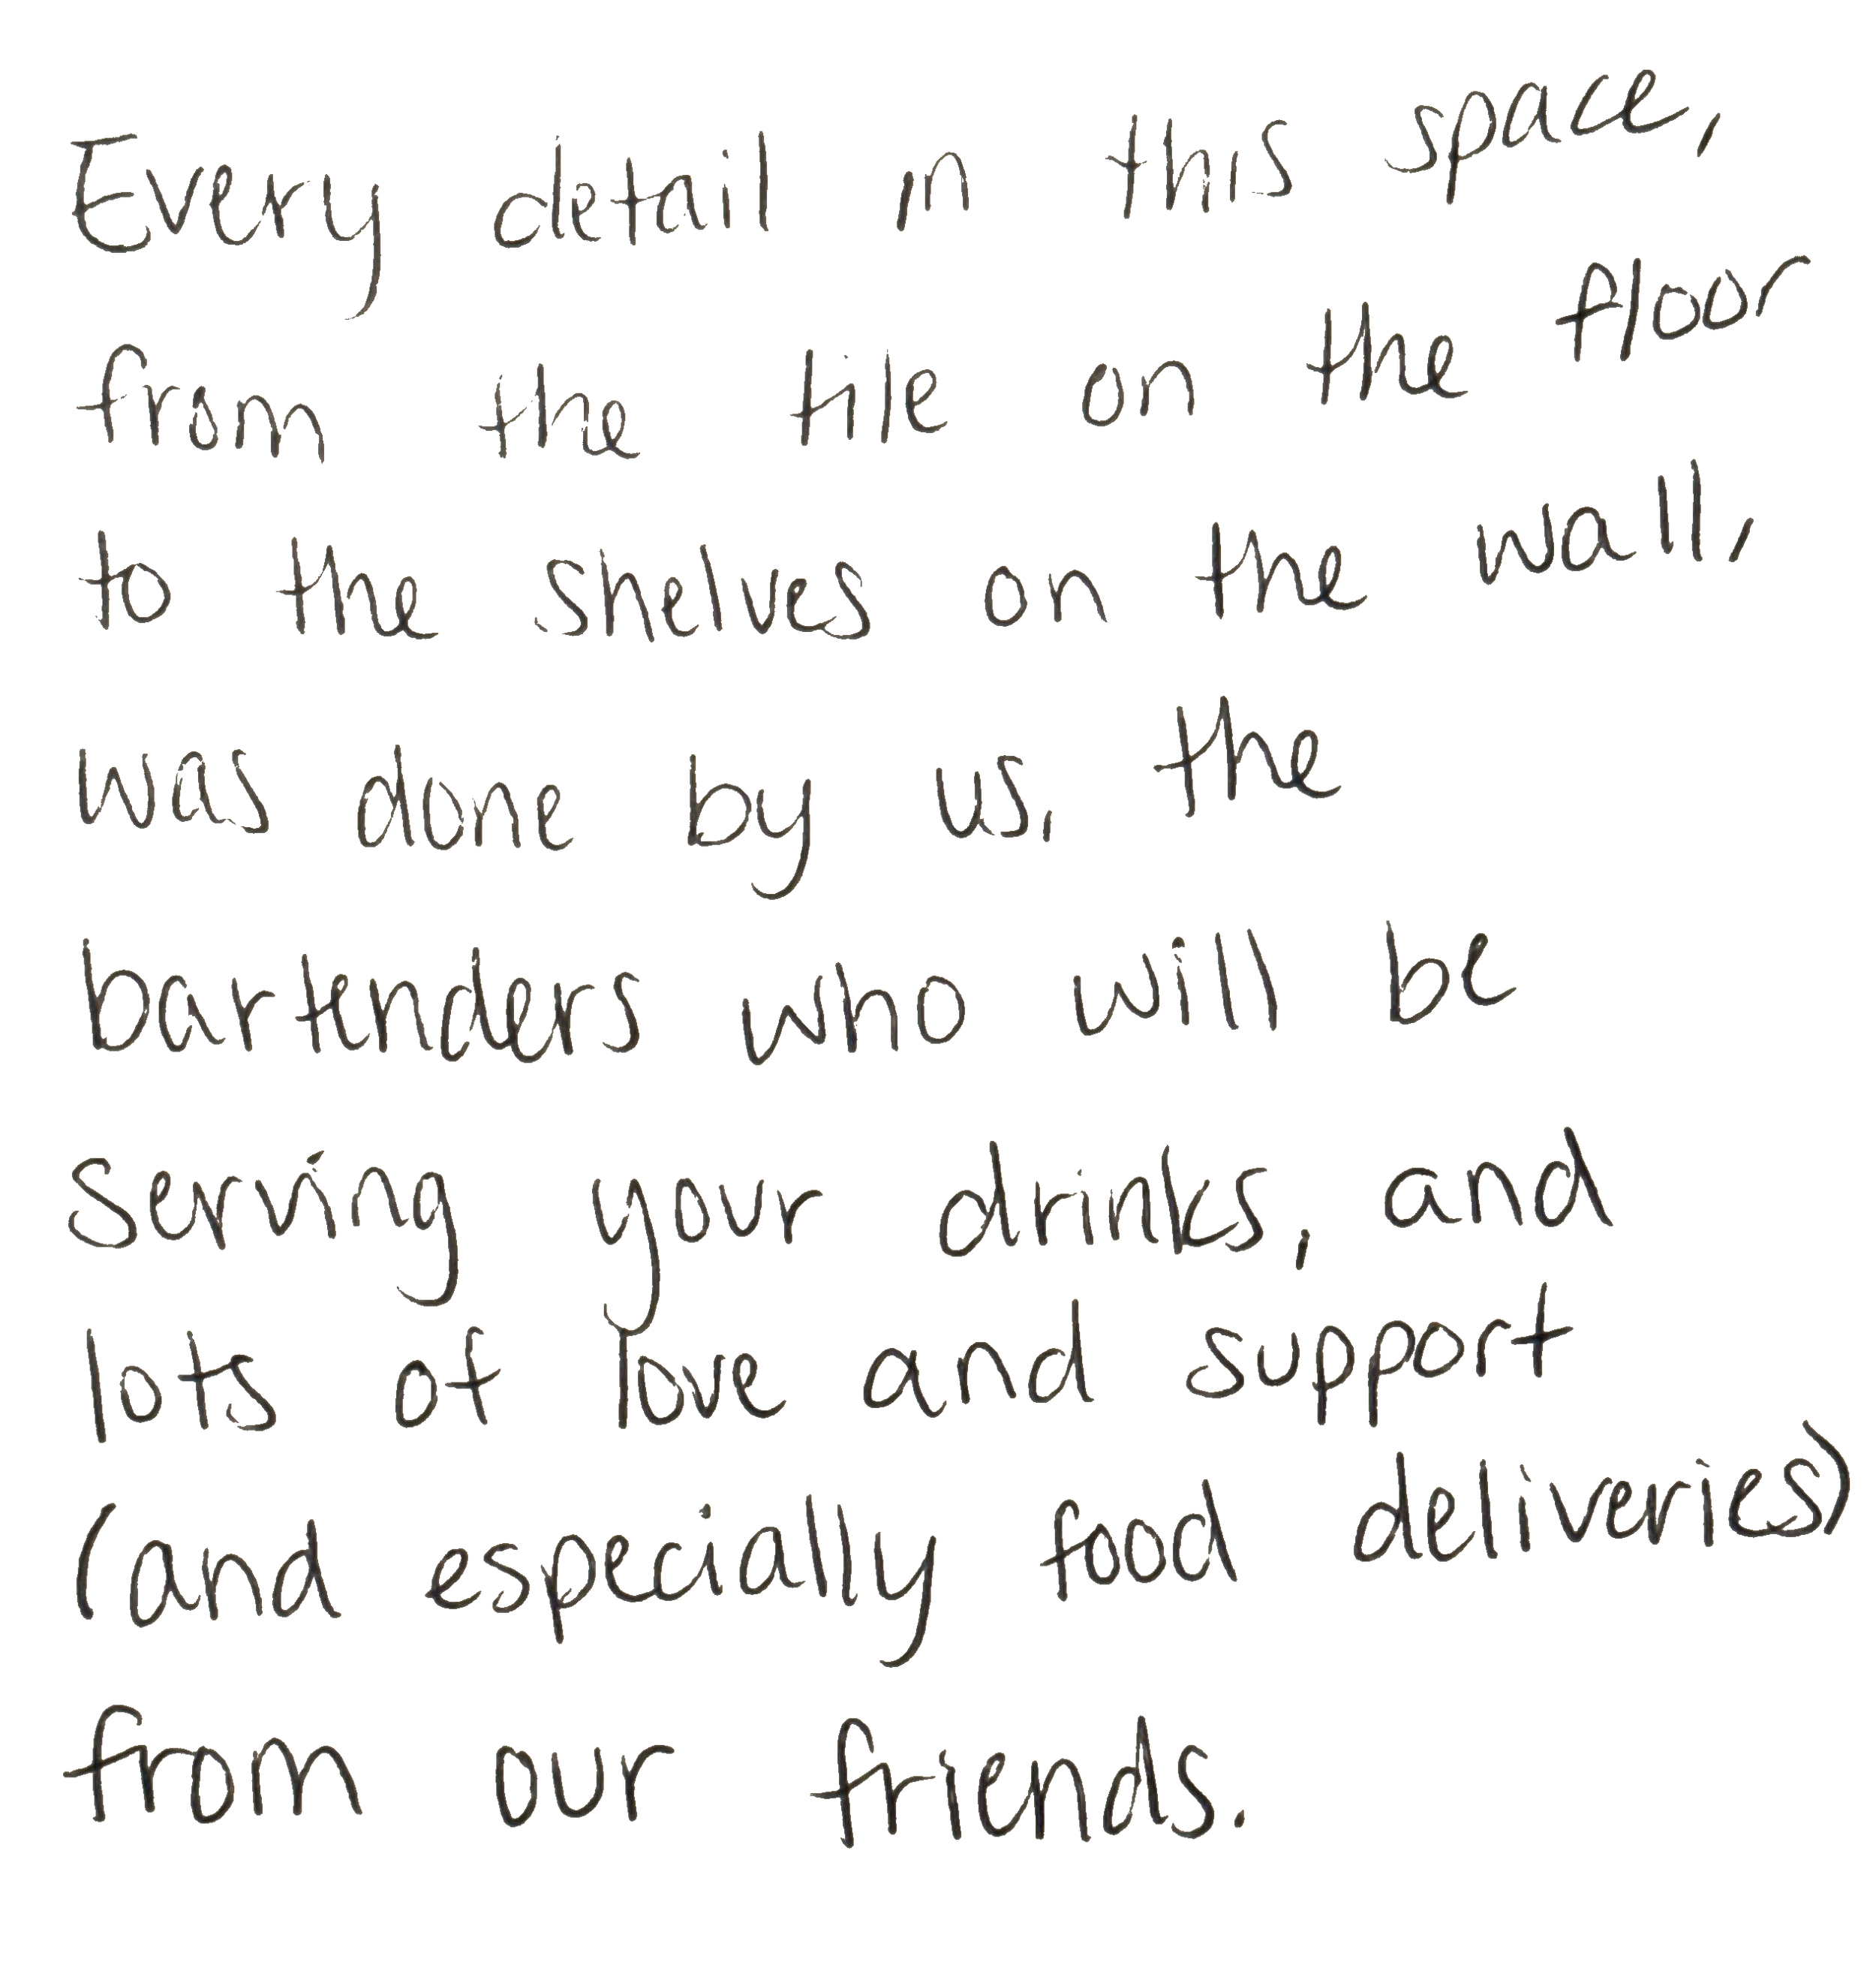 Every detail in this space,
from the tile on the floor
to the shelves on the wall,
was done by us, the
bartenders who will be
serving your drinks, and
lots of love and support
(and especially food deliveries)
from our friends.